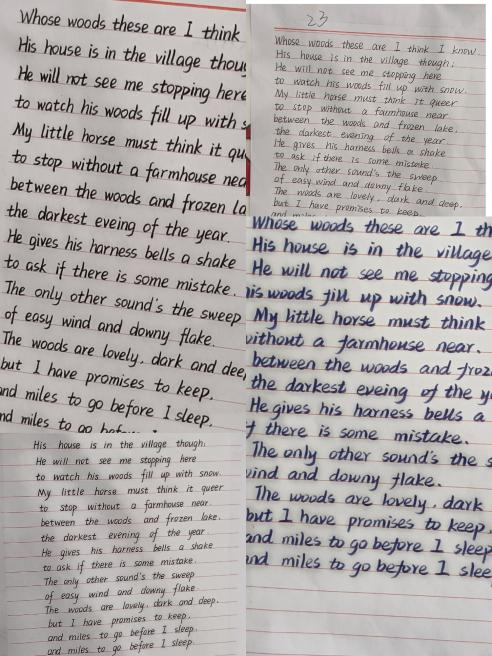 Whose woods these are I think
His house is in the village thoug
He will not see me stopping here
to watch his woods fill up with s
My little horse must think it qu
to stop without a farmhouse nea
between the woods and frozen la
the darkest eveing of the year.
He gives his harness bells a shake
to ask if there is some mistake.
The only other sound's the sweep
of easy wind and downy flake.
The woods are lovely, dark and dee,
but I have promises to keep,
and miles to go before I sleep.
nd miles to go before I
23
Whose woods these are I think I know.
His house is in the village though;
He will not see me stopping here
to watch his woods fill up with snow.
My little horse must think it queer
to stop without a farmhouse near
between the woods and frozen lake.
the darkest evening of the year.
He gives his harness bells a shake
to ask if there is some mistake
The only other sound's the sweep
of easy wind and downy flake.
The woods are lovely, dark and deep,
but I have promises to keep.
and miles
Whose woods these are I th
His house is in the village
He will not see me stopping
his woods fill up with snow.
My little horse must think
without a farmhouse near.
between the woods and froz
the darkest eveing of the y
He gives his harness bells a
f there is some mistake.
The only other sound's the s
wind and downy flake.
The woods are lovely, dark
but I have promises to keep,
and miles to go before I sleep
and miles to go before I slee
His house is in the village though;
He will not see me stopping here
to watch his woods fill up with snow.
My little horse must think it queer
to stop without a farmhouse near
between the woods and frozen lake.
the darkest evening of the year
He gives his harness bells a shake
to ask if there is some mistake.
The only other sound's the sweep
of easy wind and downy flake
The woods are lovely, dark and deep,
but I have promises to keep,
and miles to go before I sleep,
and miles to go before I sleep.